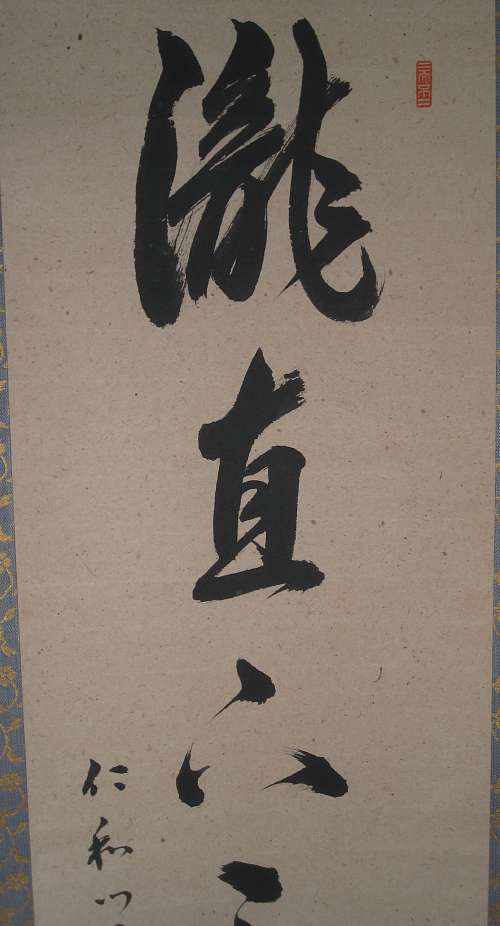 瀧直下
仁和門